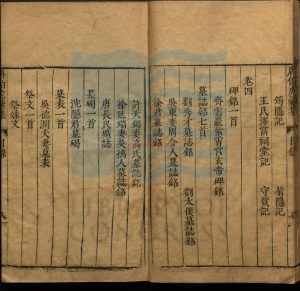 筠隱記
菊隱記
王氏澤富祠堂記
守貧記
卷四
碑銘一首
齊雲巖紫霄宮玄帝碑銘
墓誌銘七首
劉秀才墓誌銘
劉太僕墓誌銘
吳東妻周令人墓誌銘
徐君墓誌銘
許天錫妻高氏墓誌銘
徐廷瑞妻吳孺人墓誌銘
唐長民壙誌
墓碣一首
沈隱君墓碣
墓表一首
吳德潤夫妻墓表
祭文一首
祭妹文